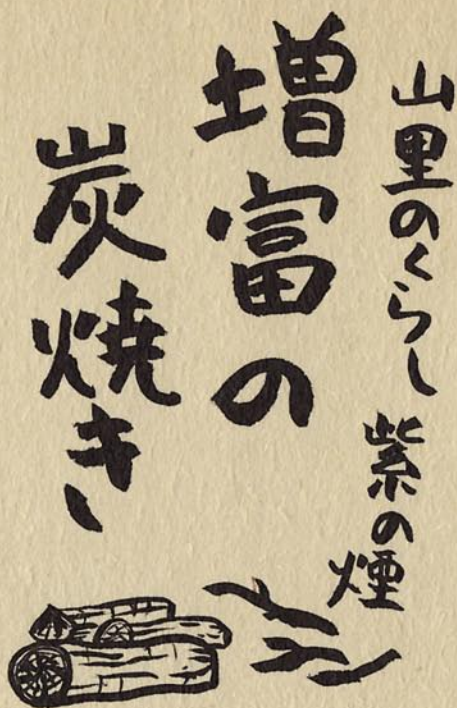 山里のくらし 紫の煙
増富の
炭焼き